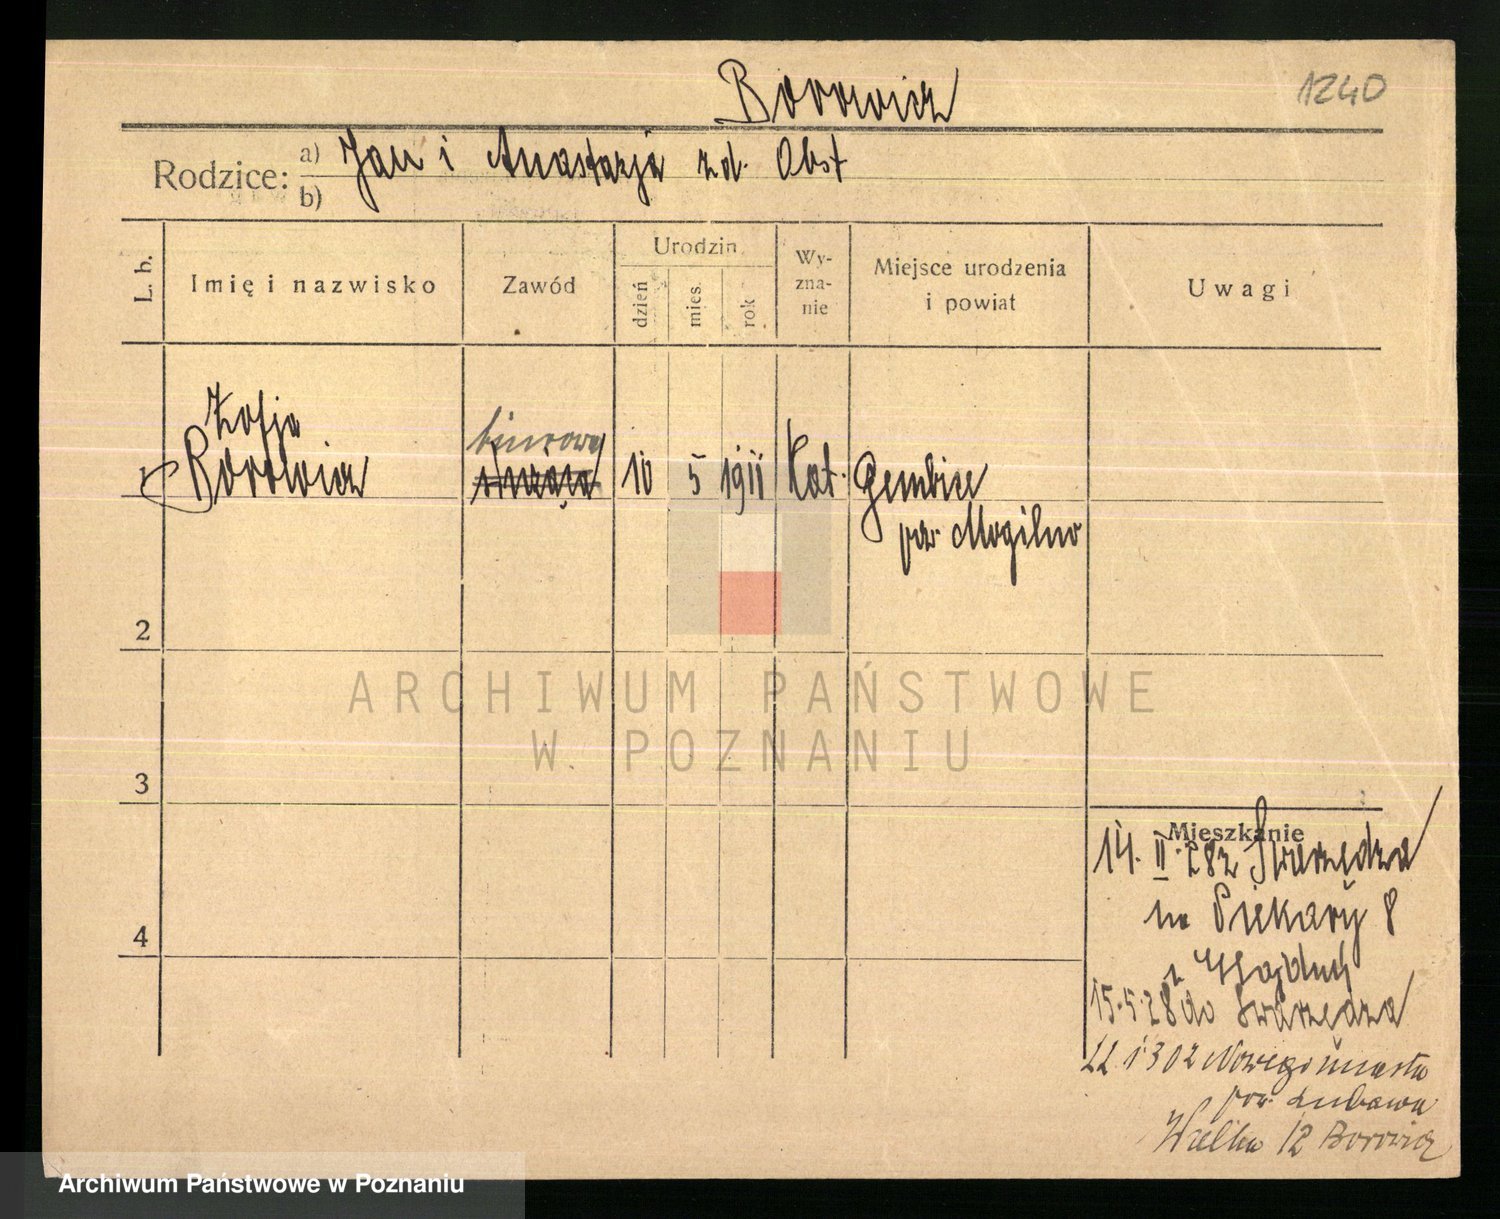 Borowicz
1240
Rodzice:
a) Jan i Anastazja zd. Obst
b)
L. b.
Imię i nazwisko
Zawód
Urodzin
dzień
mies.
rok
Wy-
zna-
nie
Miejsce urodzenia
i powiat
Uwagi
1
Zofja
Borowicz
biurowa
służąca
10
5
1911
Kat.
Gembice
pow. Mogilno
2
3
4
ARCHIWUM PAŃSTWOWE
W POZNANIU
Mieszkanie
14. II. 28 z Swarzędza
na Piekary 8
z
15.5.28 do Swarzędza
1 30 z Nowegomiasta
pow. Lubawa
Wielka 12 Borowicz
Archiwum Państwowe w Poznaniu